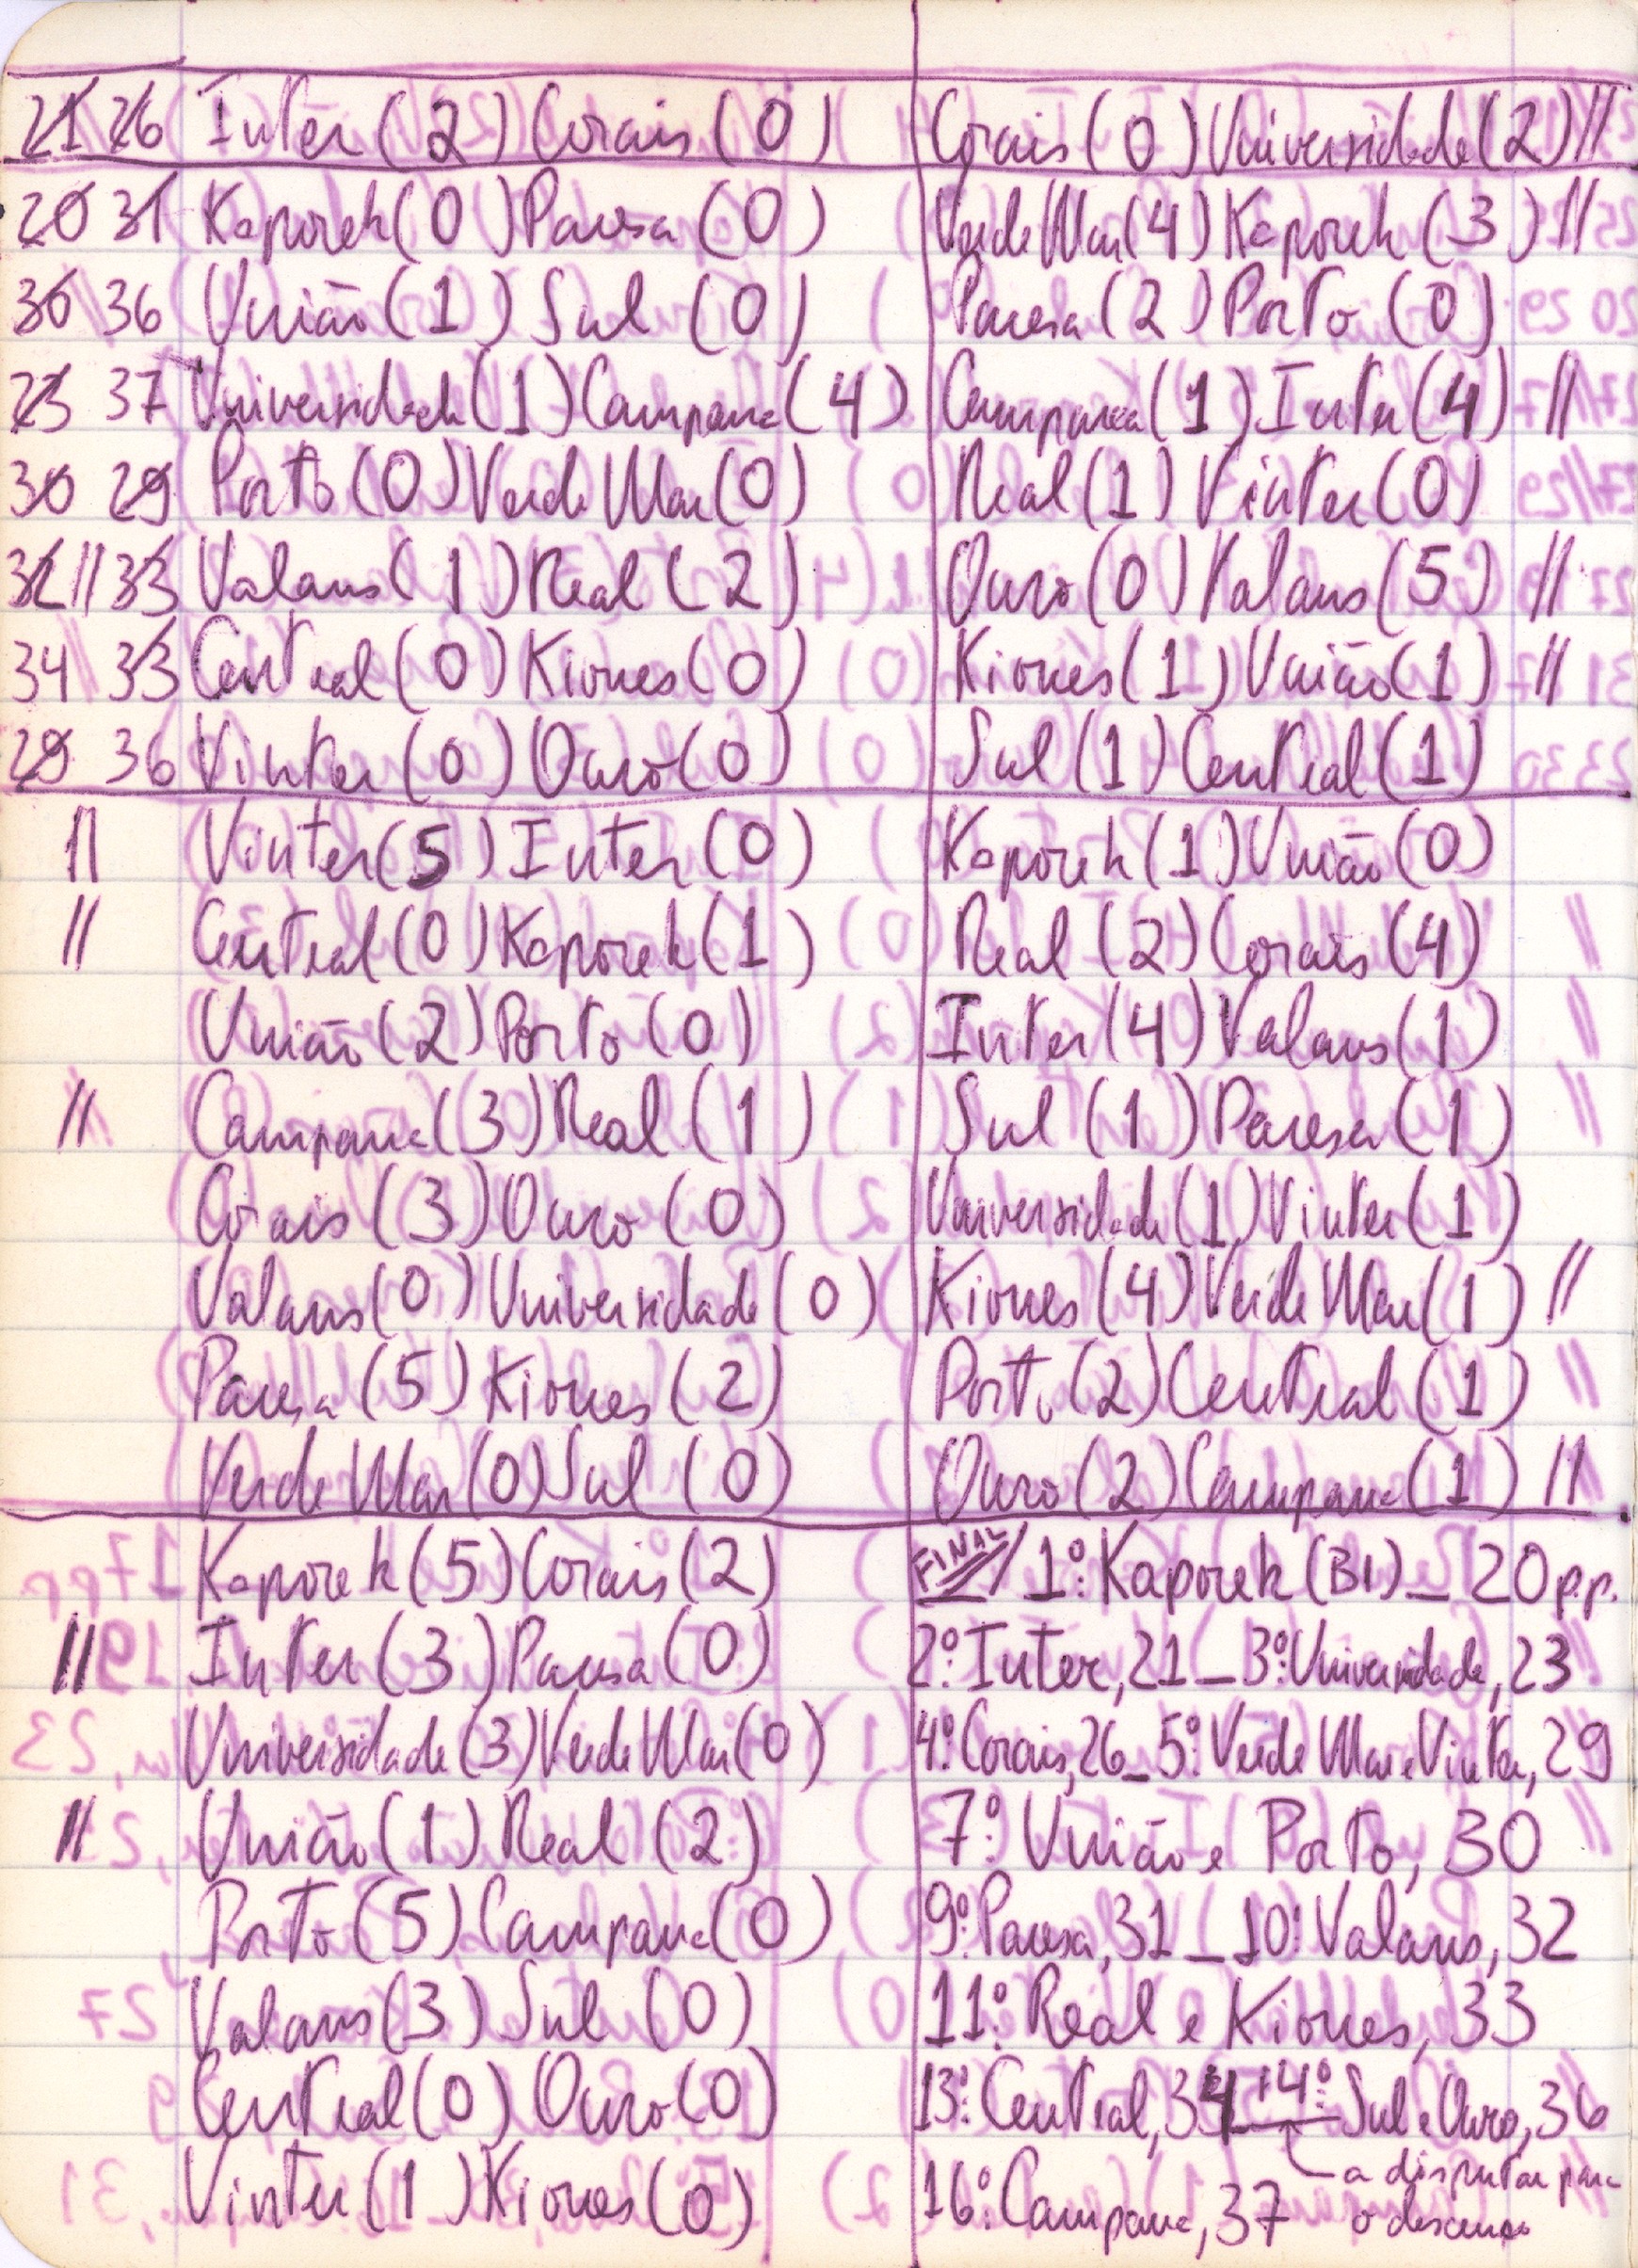 21 26 Inter (2) Corais (0)
20 31 Kaporek (0) Pausa (0)
30 36 União (1) Sul (0)
23 37 Universidade (1) Campana (4)
30 29 Porto (0) Verde Mar (0)
32 // 33 Valans (1) Real (2)
34 33 Central (0) Kiones (0)
29 36 Vinter (0) Ouro (0)
// Vinter (5) Inter (0)
// Central (0) Kaporek (1)
União (2) Porto (0)
// Campana (3) Real (1)
Corais (3) Ouro (0)
Valans (0) Universidade (0)
Pausa (5) Kiones (2)
Verde Mar (0) Sul (0)
Kaporek (5) Corais (2)
// Inter (3) Pausa (0)
Universidade (3) Verde Mar (0)
// União (1) Real (2)
Porto (5) Campana (0)
Valans (3) Sul (0)
Central (0) Ouro (0)
Vinter (1) Kiones (0)
Corais (0) Universidade (2) //
Verde Mar (4) Kaporek (3) //
Pausa (2) Porto (0)
Campana (1) Inter (4) //
Real (1) Vinter (0)
Ouro (0) Valans (5) //
Kiones (1) União (1) //
Sul (1) Central (1)
Kaporek (1) União (0)
Real (2) Corais (4)
Inter (4) Valans (1)
Sul (1) Pausa (1)
Universidade (1) Vinter (1)
Kiones (4) Verde Mar (1) //
Porto (2) Central (1)
Ouro (2) Campana (1) //
FINAL // 1º: Kaporek (BI) _ 20 p.p.
2º: Inter, 21 _ 3º: Universidade, 23
4º: Corais, 26 _ 5º: Verde Mar e Vinter, 29
7º: União e Porto, 30
9º: Pausa, 31 _ 10º: Valans, 32
11º: Real e Kiones, 33
13º: Central, 34 14º: Sul e Ouro, 36
a disputar para
16º: Campana, 37 o descenso